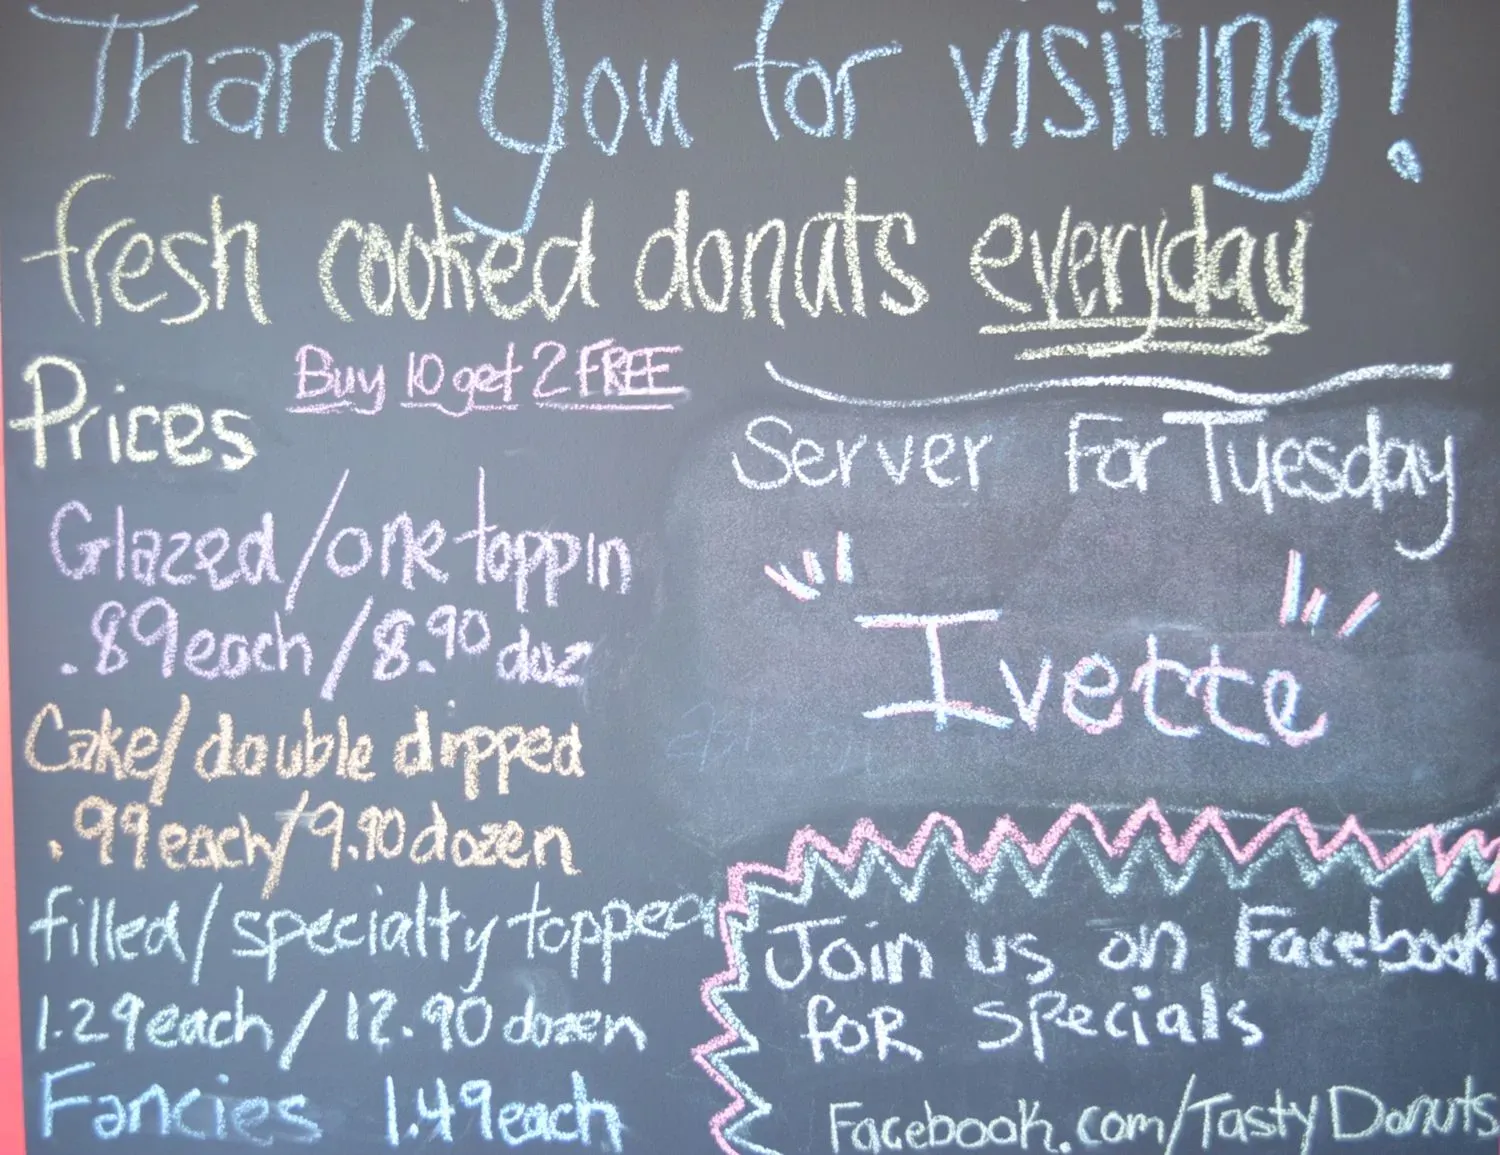 Thank You for visiting!
fresh cooked donuts everyday
Prices
Buy 10 get 2 FREE
Glazed/one toppin
.89 each/8.90 doz
Cake/double dipped
.99 each/9.90 dozen
filled/specialty topped
1.29 each/12.90 dozen
Fancies 1.49 each
Server For Tuesday
"Ivette"
Join us on Facebook
for specials
Facebook.com/Tasty Donuts